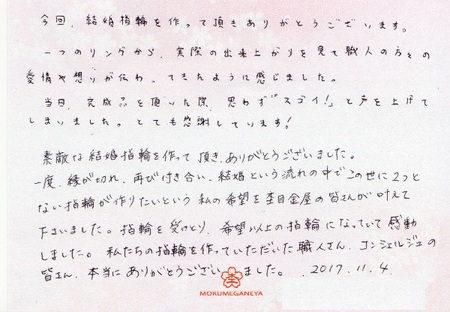 今回、結婚指輪を作って頂きありがとうございます。
一つのリングから、実際の出来上がりを見て職人の方々の
愛情や想いが伝わってきたように感じました。
当日、完成品を頂いた際、思わず"スゴイ!"と声を上げて
しまいました。とても感謝しています!
素敵な結婚指輪を作って頂き、ありがとうございました。
一度、縁が切れ、再び付き合い、結婚という流れの中でこの世に2つと
ない指輪が作りたいという私の希望を杢目金屋の皆さんが叶えて
下さいました。指輪を受けとり、希望以上の指輪になっていて感動
しました。私たちの指輪を作っていただいた職人さん、コンシェルジュの
皆さん、本当にありがとうございました。 2017.11.4
MOKUMEGANEYA